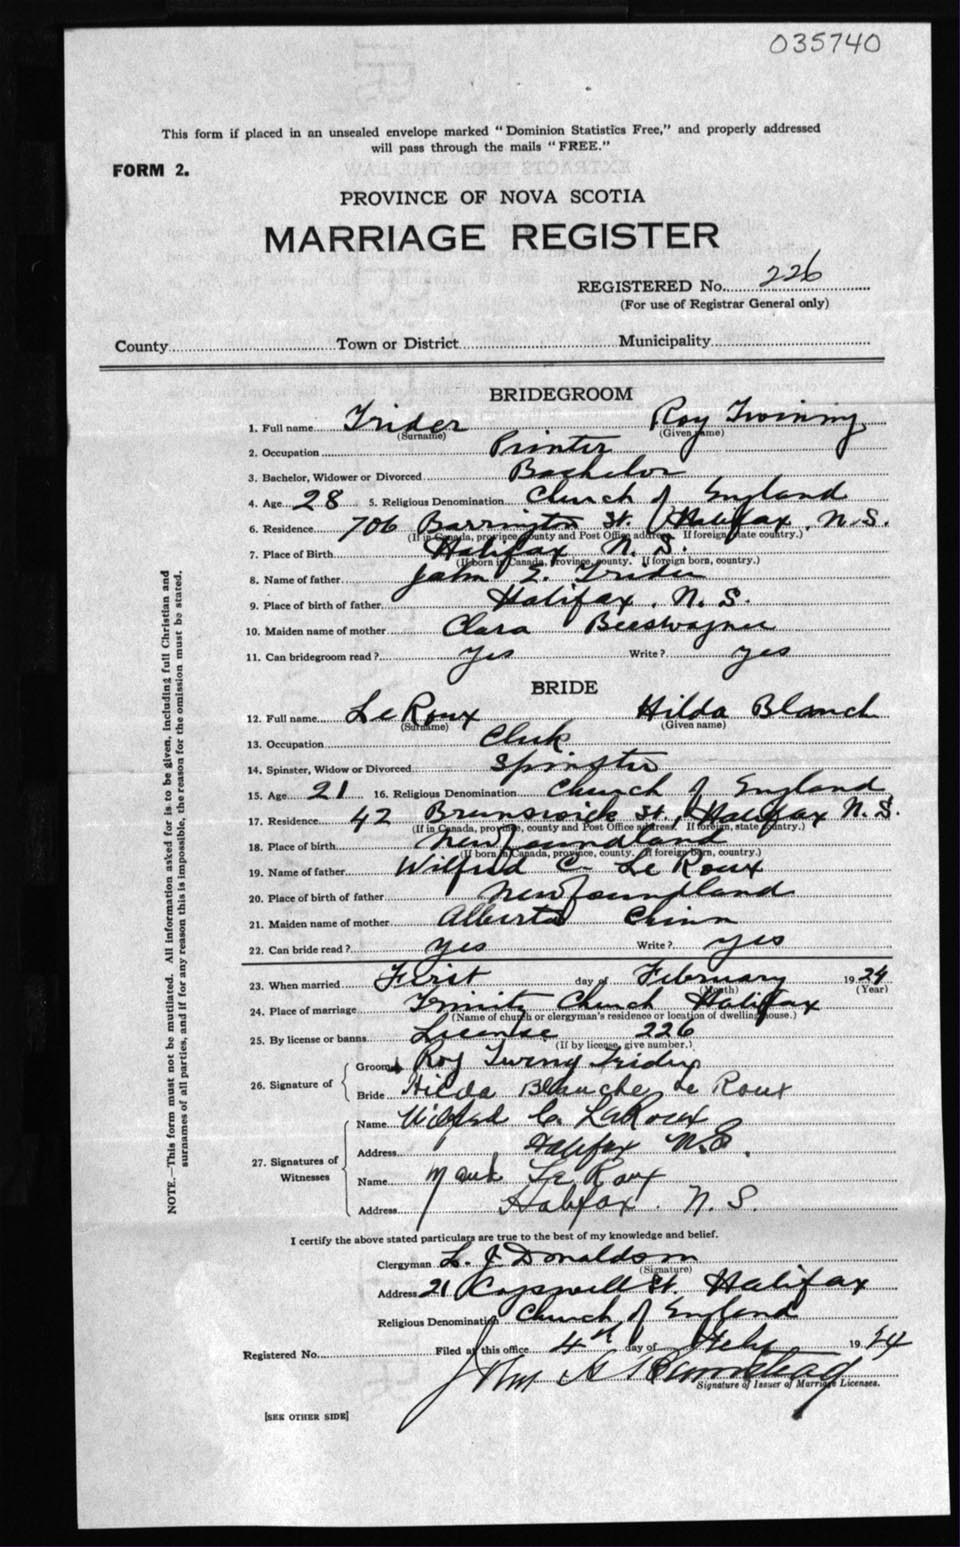 035740
This form if placed in an unsealed envelope marked "Dominion Statistics Free," and properly addressed
will pass through the mails "FREE."
FORM 2.
PROVINCE OF NOVA SCOTIA
MARRIAGE REGISTER
REGISTERED No. 226
(For use of Registrar General only)
County Town or District Municipality
BRIDEGROOM
1. Full name Trider Roy Twining
(Surname) (Given name)
2. Occupation Printer
3. Bachelor, Widower or Divorced Bachelor
4. Age 28 5. Religious Denomination Church of England
6. Residence 706 Barrington St. Halifax, N.S.
(If in Canada, province, county and Post Office address. If foreign, state country.)
7. Place of Birth Halifax N.S.
(If born in Canada, province, county. If foreign born, country.)
8. Name of father John E. Trider
9. Place of birth of father Halifax. N.S.
10. Maiden name of mother Clara Beeswagner
11. Can bridegroom read? yes Write? yes
BRIDE
12. Full name Le Roux Hilda Blanch
(Surname) (Given name)
13. Occupation Clerk
14. Spinster, Widow or Divorced Spinster
15. Age 21 16. Religious Denomination Church of England
17. Residence 42 Brunswick St., Halifax N.S.
(If in Canada, province, county and Post Office address. If foreign, state country.)
18. Place of birth Newfoundland
(If born in Canada, province, county. If foreign born, country.)
19. Name of father Wilfred C. Le Roux
20. Place of birth of father Newfoundland
21. Maiden name of mother Alberta
22. Can bride read? yes Write? yes
23. When married First day of February 1924
(Month) (Year)
24. Place of marriage Trinity Church Halifax
(Name of church or clergyman's residence or location of dwelling house.)
25. By license or banns License 226
(If by license, give number.)
26. Signature of
Groom Roy Twining Trider
Bride Hilda Blanche Le Roux
27. Signatures of Witnesses
Name Wilfred C. LeRoux
Address Halifax N.S.
Name Le Roux
Address Halifax. N.S.
I certify the above stated particulars are true to the best of my knowledge and belief.
Clergyman L. J. Donaldson
(Signature)
Address 21 Cogswell St. Halifax
Religious Denomination Church of England
Registered No. Filed at this office 4th day of Feby 1924
John A
Signature of Issuer of Marriage Licenses.
[SEE OTHER SIDE]
NOTE.—This form must not be mutilated. All information asked for is to be given, including full Christian and
surnames of all parties, and if for any reason this is impossible, the reason for the omission must be stated.